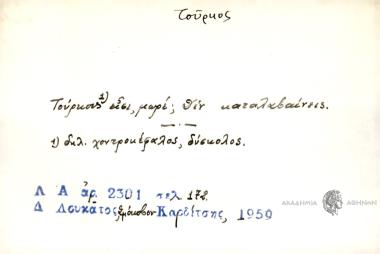 Τοῦρκος
Τοῦρκους¹⁾ εἶσι, μαρέ; Δὲν καταλαβαίνεις.
1) δηλ. χοντροκέφαλος, δύσκολος.
Λ Α ἀρ. 2301 σελ. 178.
Δ Λουκᾶτος, Σμόκοβον Καρδίτσης, 1959
ΑΚΑΔΗΜΙΑ ΑΘΗΝΩΝ